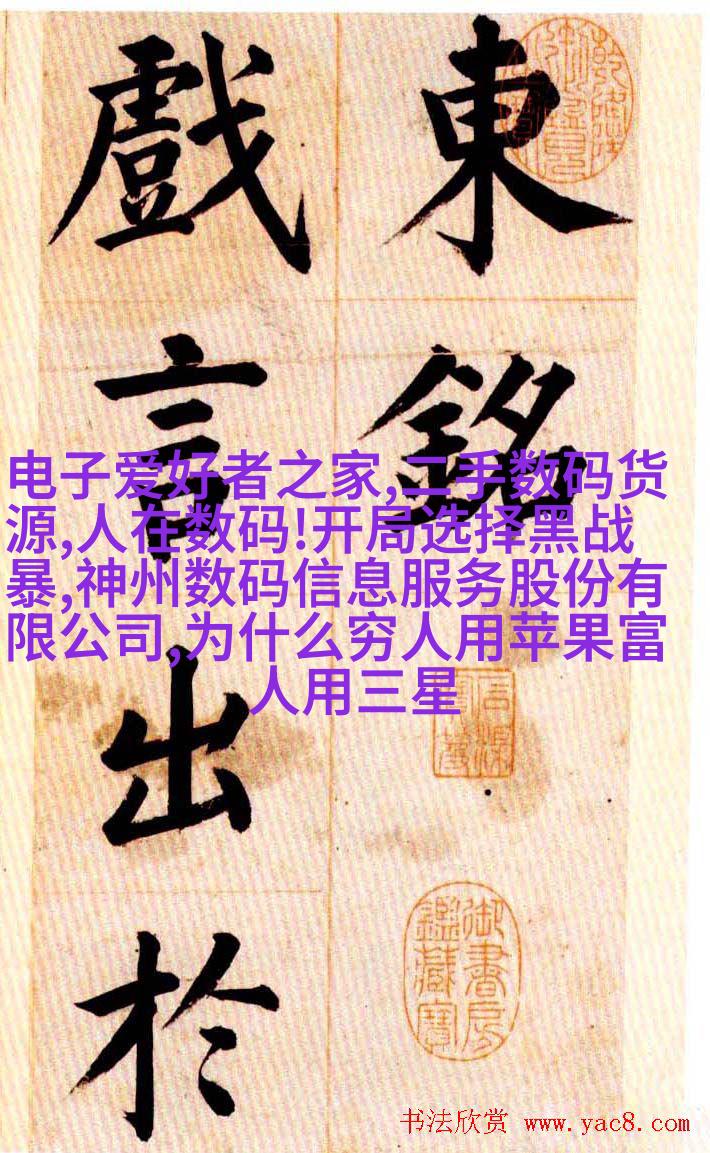 東銘
戲言出於
电子爱好者之家,二手数码货
源,人在数码!开局选择黑战
暴,神州数码信息服务股份有
限公司,为什么穷人用苹果富
人用三星
御書房
鑑藏寶
书法欣赏 www.yac8.com